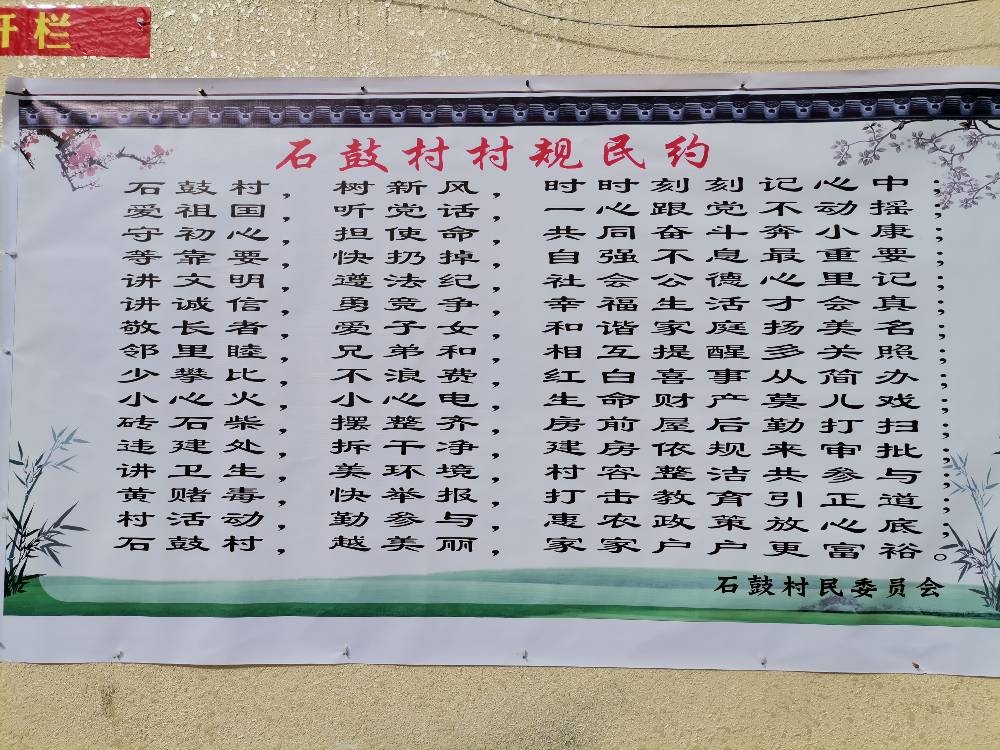 开栏
石鼓村村规民约
石鼓村，树新风，时时刻刻记心中；
爱祖国，听党话，一心跟党不动摇；
守初心，担使命，共同奋斗奔小康；
等靠要，快扔掉，自强不息最重要；
讲文明，遵法纪，社会公德心里记；
讲诚信，勇竞争，幸福生活才会真；
敬长者，爱子女，和谐家庭扬美名；
邻里睦，兄弟和，相互提醒多关照；
少攀比，不浪费，红白喜事从简办；
小心火，小心电，生命财产莫儿戏；
砖石柴，摆整齐，房前屋后勤打扫；
违建处，拆干净，建房依规来审批；
讲卫生，美环境，村容整洁共参与；
黄赌毒，快举报，打击教育引正道；
村活动，勤参与，惠农政策放心底；
石鼓村，越美丽，家家户户更富裕。
石鼓村民委员会